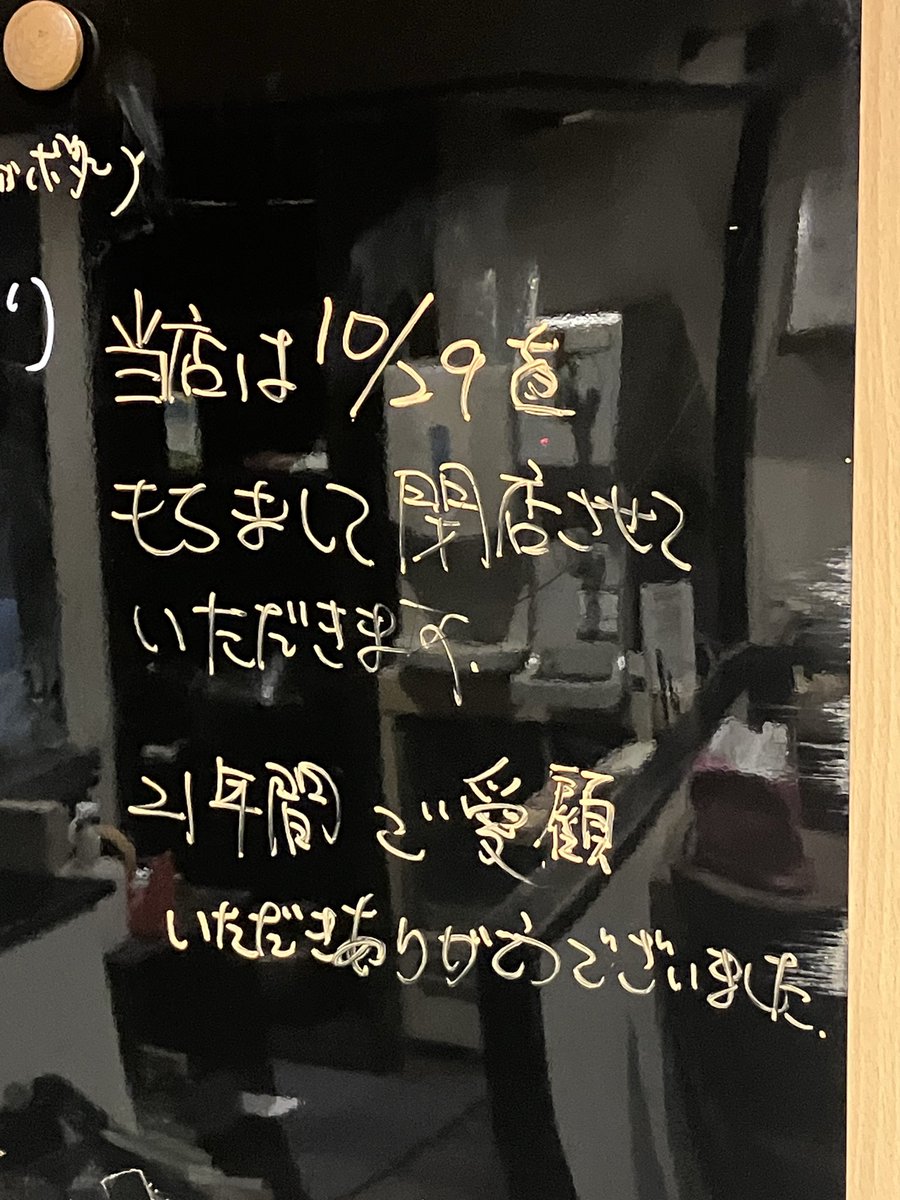 当店は10/29
もちまして閉店させて
いただきます.
21年間 ご愛顧
いただきありがとうございました.